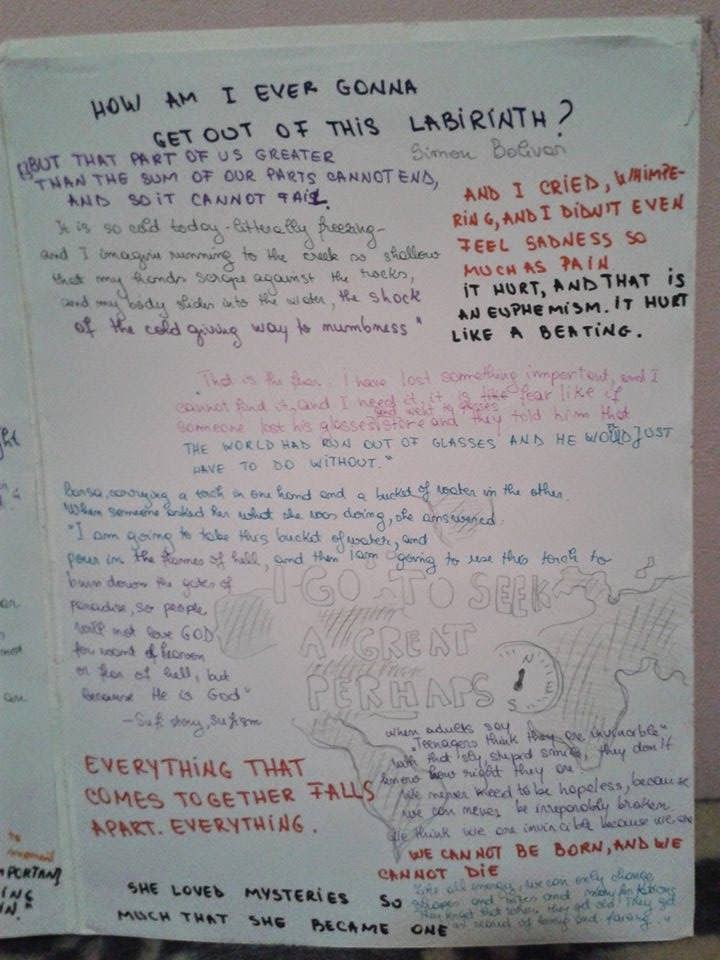 HOW AM I EVER GONNA
GET OUT OF THIS LABIRINTH?
Simon Bolivar
BUT THAT PART OF US GREATER
THAN THE SUM OF OUR PARTS CANNOT END,
AND SO IT CANNOT FAIL.
It is so cold today - litterally freezing -
and I imagine running to the creek so shallow
that my hands scrape against the rocks,
and my body slides into the water, the shock
of the cold giving way to numbness"
AND I CRIED, WHIMPE-
RING, AND I DIDN'T EVEN
FEEL SADNESS SO
MUCH AS PAIN
IT HURT, AND THAT IS
AN EUPHEMISM. IT HURT
LIKE A BEATING.
That is the fear. I have lost something important, and I
cannot find it, and I need it, it is fear like if
someone lost his glasses and went to glasses store and they told him that
THE WORLD HAD RUN OUT OF GLASSES AND HE WOULD JUST
HAVE TO DO WITHOUT."
carrying a torch in one hand and a bucket of water in the other.
When someone asked her what she was doing, she answered.
"I am going to take this bucket of water, and
pour in the flames of hell, and then I am going to use this torch to
burn down the gates of
paradise, so people
will not love GOD
for want of heaven
or fear of hell, but
because He is God"
- Sufi story, Sufism
I GO TO SEEK
A GREAT
PERHAPS
N
W
S
When adults say
"Teenagers think they are invincible"
with that sly, stupid smile, they don't
know how right they are
We never need to be hopeless, because
we can never be irreparably broken.
We think we are invincible because we are
WE CANNOT BE BORN, AND WE
CANNOT DIE
Like all energy, we can only change
shapes and sizes and
They forget that when they get old. They get
so scared of losing and failing."
EVERYTHING THAT
COMES TOGETHER FALLS
APART. EVERYTHING.
SHE LOVED MYSTERIES SO
MUCH THAT SHE BECAME ONE